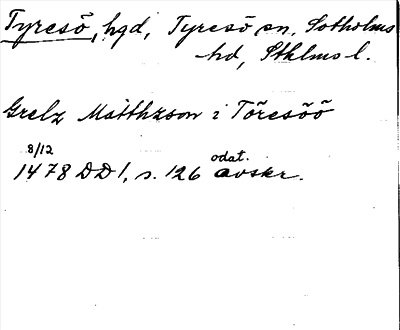 Tyresö, hgd, Tyresö sn, Sotholms
hd, Stklms l.
Grelz Matthzson i Töresöö
8/12 odat.
1478 DD 1, s. 126 avskr.